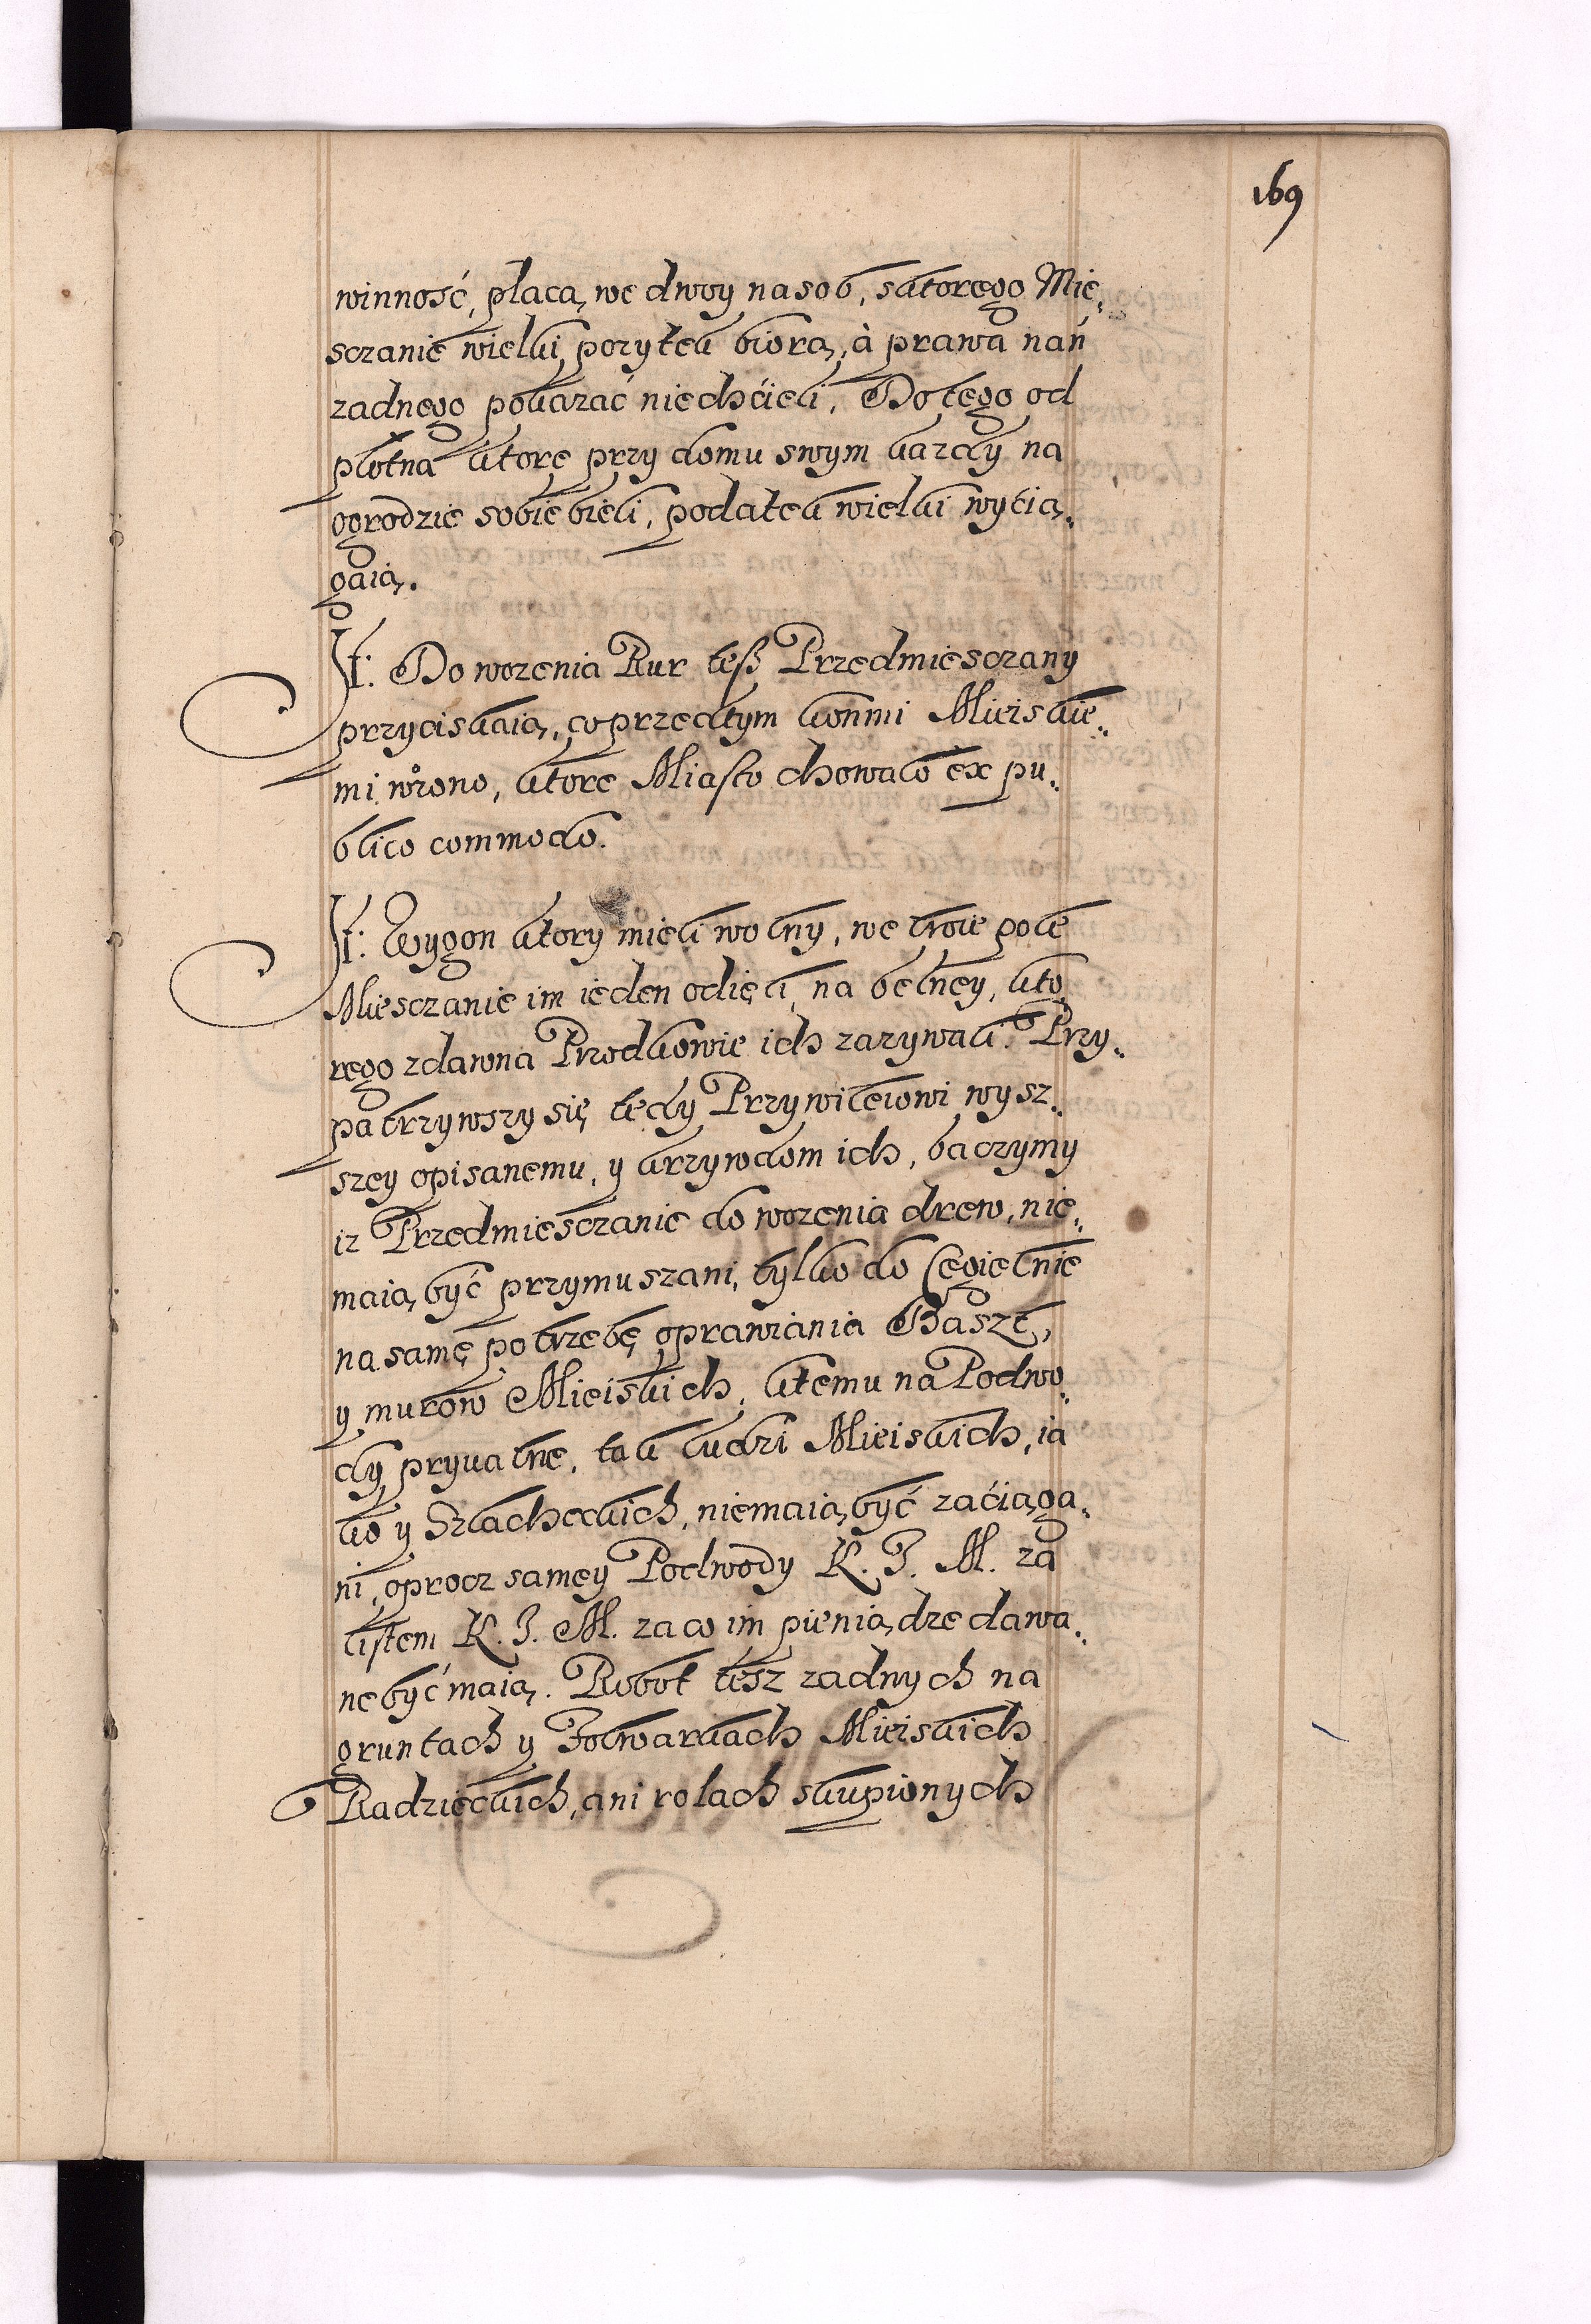 169
winność, płacą, we dwoy nasob, sktorego Mie„
sczanie wielki pozytek biorą, à prawa nań
zadnego pokazać niechcieli, Do tego od
płotna ktore przy domu swym kazdy na
ogrodzie sobie bieli, podatek wielki wycią„
gaią.
It: Do wozenia Rur teß Przedmiesczany
przyciskaią, co przedtym konmi Mieiskie„
mi wożono, ktore Miasto chowało ex pu„
blico commodo.
It: Wygon ktory mieli wolny, we troie pole
Miesczanie im ieden odięli, na Belney, kto„
rego zdawna Przodkowie ich zazywali. Przy„
patrzywszy się tedy Przywileiowi wysz„
szey opisanemu, y krzywdom ich, baczymy
iz Przedmiesczanie do wozenia drew, nie„
maią być przymuszani, tylko do Cegielnie
na samę potrzebę oprawiania Baszt,
y murow Mieiskich, ktemu na Podwo„
dy pryuatne, tak ludzi Mieiskich, ia
ko y Szlacheckich, niemaią być zaciąga„
ni, oprocz samey Podwody K. J. M. za
listem K. J. M. za co im pieniądze dawa„
ne być maią. Robot tesz zadnych na
gruntach y Folwarkach Mieiskich
Radzieckich, ani rolach skupionych